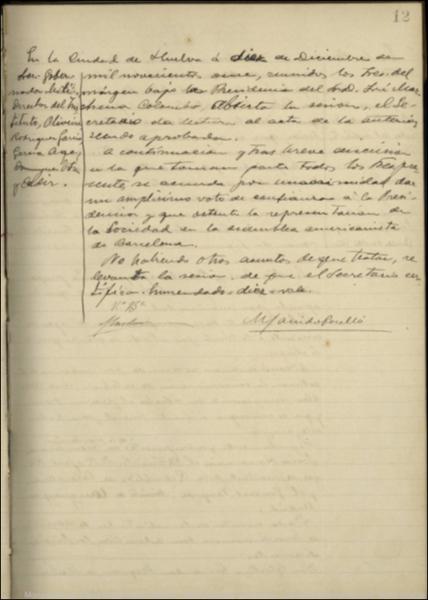 12
En la Ciudad de Huelva á diez de Diciembre de
mil novecientos once, reunidos los Sres. del
márgen bajo la Presidencia del Sr. D. José Mar
chena Colombo, Abierta la sesión, el Se
cretario da lectura al acta de la anterior
siendo aprobada.
A continuacion y tras breve discusion
en la que toman parte todos los Sres. pre
sentes, se acuerda por unanimidad dar
un amplisimo voto de confianza á la Presi
dencia y que ostente la representacion de
la Sociedad en la asamblea americanista
de Barcelona.
No habiendo otros asuntos de que tratar, se
levanta la sesion de que el Secretario cer
tifico. Enmendado = diez = vale.
Sres. Gober
nador Militar,
Director del Ins
tituto, Oliveira
Rodriguez Garcia
Garcia
y
Vº Bº
Marchena